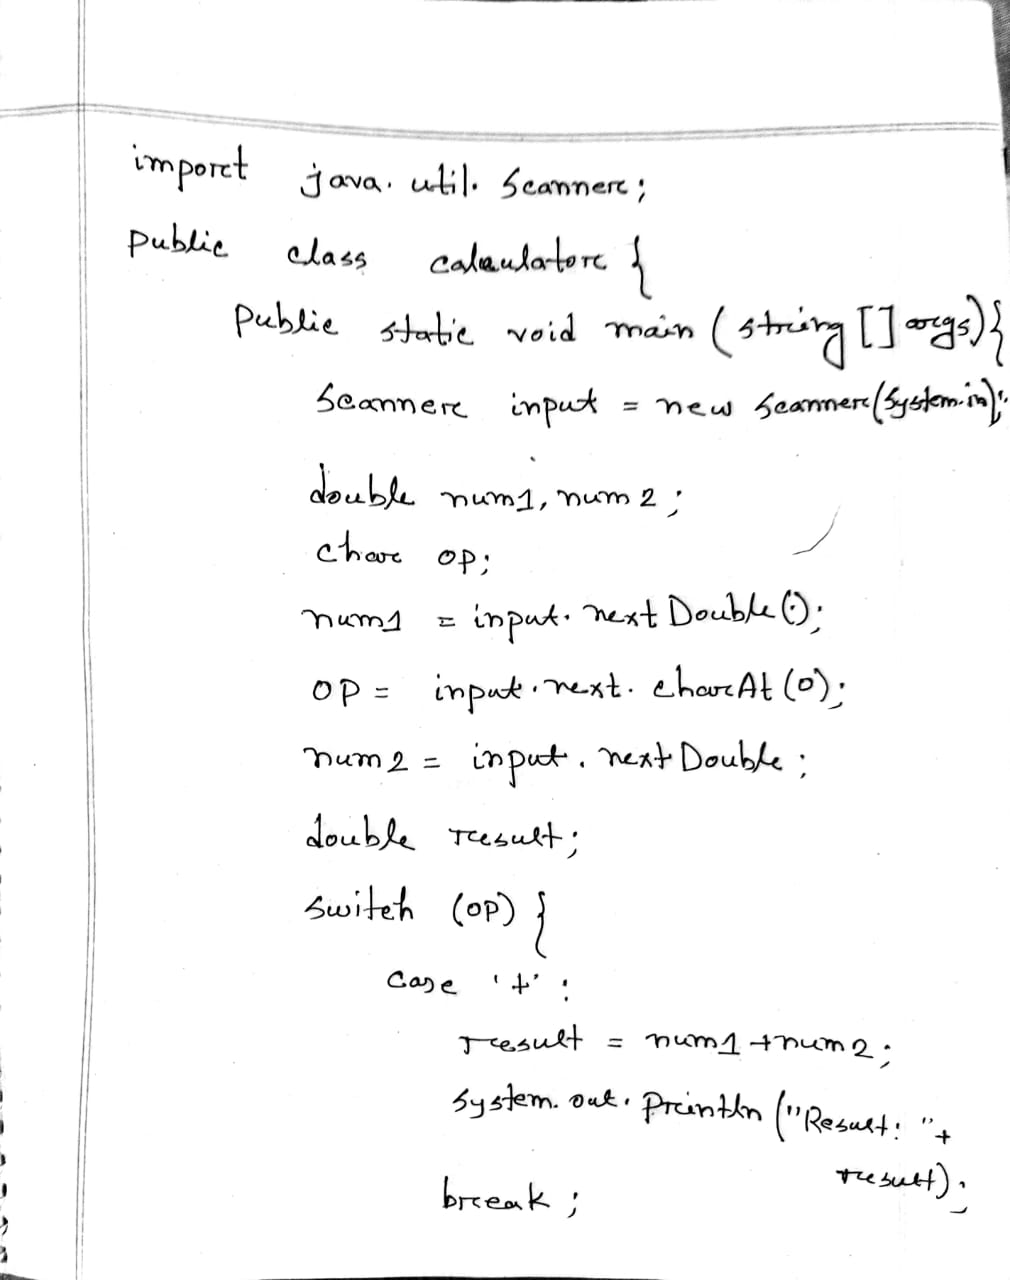 import java.util.Scanner;
public class calculator {
public static void main (string [] args) {
Scanner input = new Scanner(System.in);
double num1, num2;
char op;
num1 = input.nextDouble();
op = input.next.charAt(0);
num2 = input.nextDouble;
double result;
switch (op) {
case '+' :
result = num1 + num2;
System.out.println ("Result: " +
result);
break;